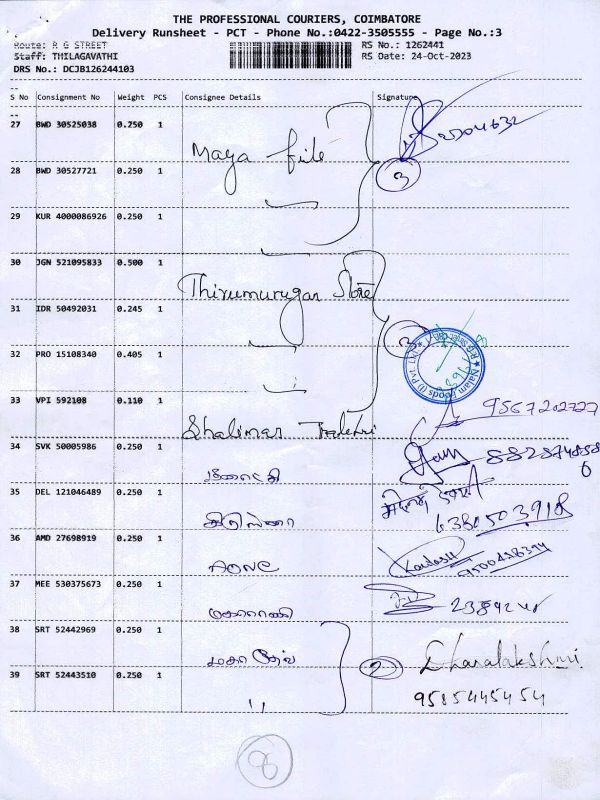 THE PROFESSIONAL COURIERS, COIMBATORE
Delivery Runsheet - PCT - Phone No.:0422-3505555 - Page No.:3
Route: R G STREET
Staff: THILAGAVATHI
DRS No.: DCJB126244103
RS No.: 1262441
RS Date: 24-Oct-2023
S No Consignment No Weight PCS Consignee Details Signature
27 BWD 30525038 0.250 1
Maya file
28 BWD 30527721 0.250 1
3
29 KUR 4000086926 0.250 1
30 JGN 521095833 0.500 1
Thirumurugan Store
31 IDR 50492031 0.245 1
3
32 PRO 15108340 0.405 1
Nalam Foods (I) Pvt. Ltd.
33 VPI 592108 0.110 1
Shalimar
34 SVK 50005986 0.250 1
35 DEL 121046489 0.250 1
6380503918
36 AMD 27698919 0.250 1
Kailash
9500428394
37 MEE 530375673 0.250 1
மகாராணி
38 SRT 52442969 0.250 1
மகா தேவ்
2 Dharalakshmi
39 SRT 52443510 0.250 1
"
9585445454
8